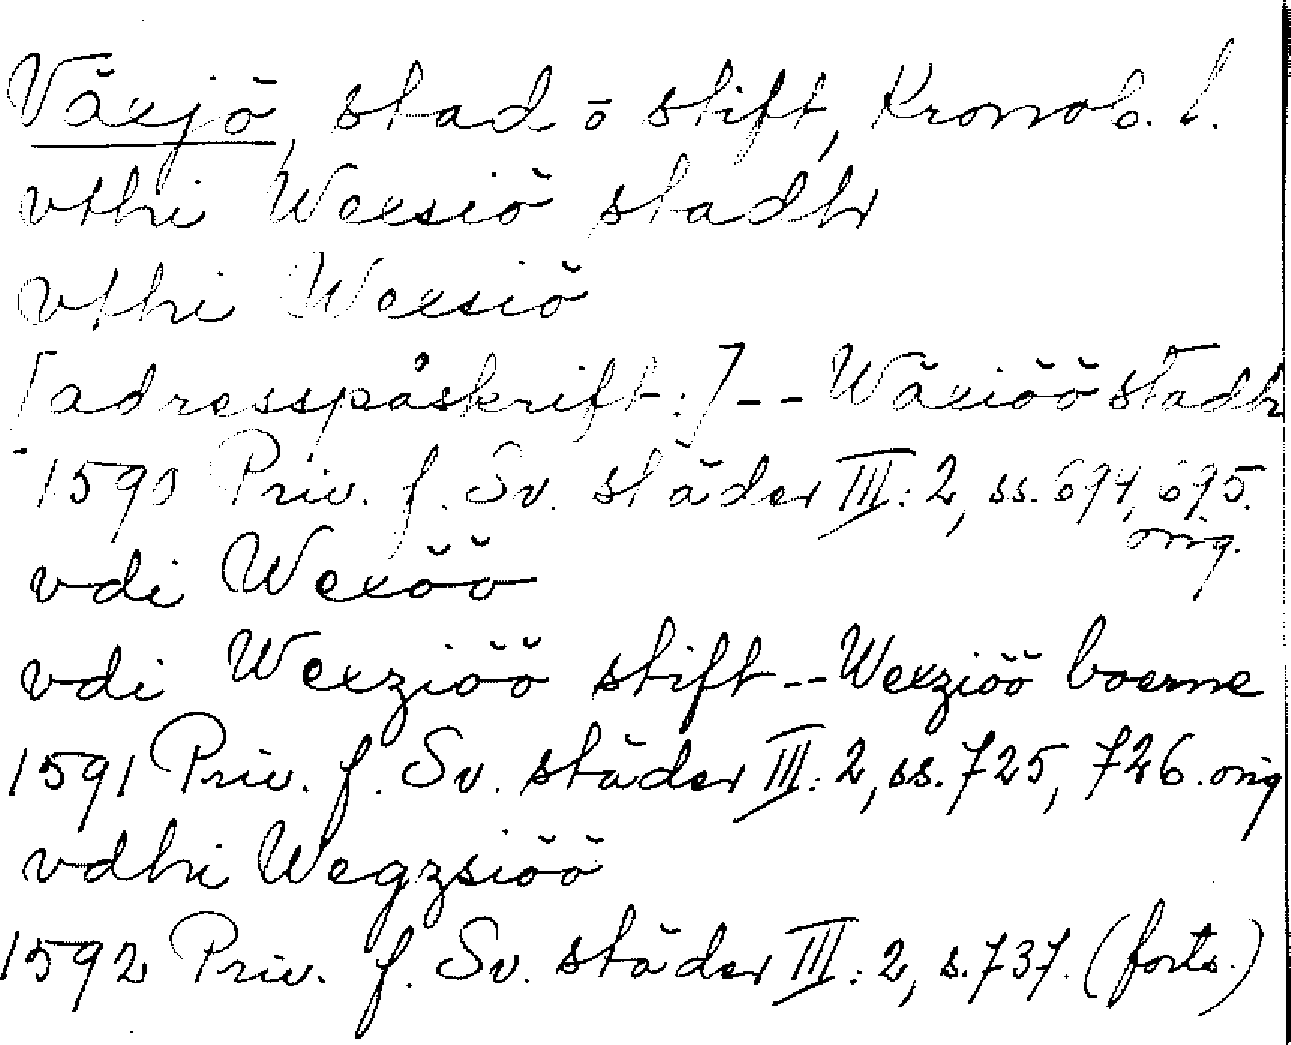 Växjö, stad o stift, Kronob. l.
vthi Wexsiö stadh
vthi Wexsiö
[adresspåskrift:] -- Wäxiöö stadh
1590 Priv. f. Sv. städer III: 2, ss. 694, 695.
orig.
vdi Wexöö
vdi Wexziöö stift -- Wexziöö boerne
1591 Priv. f. Sv. städer III: 2, ss. 725, 726. orig
vdhi Wegzsiöö
1592 Priv. f. Sv. städer III: 2, s. 737. (forts.)